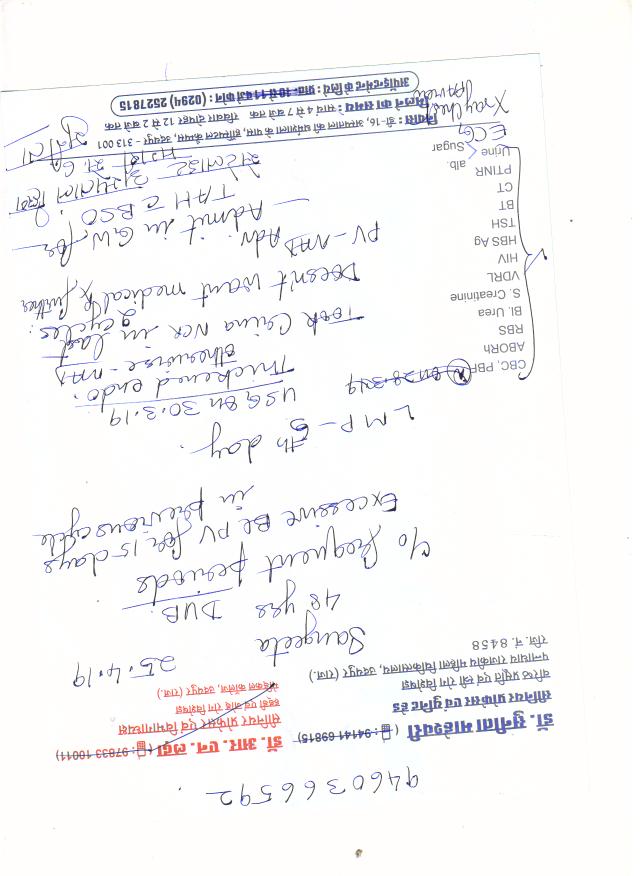 9460366592
डॉ. सुनीता माहेश्वरी (: 94141 69815)
सीनियर प्रोफेसर एवं यूनिट हेड
वरिष्ठ प्रसूति एवं स्त्री रोग विशेषज्ञ
पन्नाधाय राजकीय महिला चिकित्सालय, उदयपुर (राज.)
रजि. नं. 8458
डॉ. आर. एन. लढ्ढा (: 97833 10011)
सीनियर प्रोफेसर एवं विभागाध्यक्ष
हड्डी एवं जोड़ रोग विशेषज्ञ
मेडिकल कॉलेज, उदयपुर (राज.)
25.4.19
Sangeeta
48 yrs DUB
c/o frequent periods
Excessive Bl PV for 15 days
in previous cycle
LMP - 5th day.
USG on 30.3.19
Thickened endo.
otherwise - nms
Took Crina NCR in last
2 cycles.
Doesn't want medical Rx further
PV - nms
Adv.
Admit in GW. for
TAH c BSO.
CBC, PBF
ABORh
RBS
Bl. Urea
S. Creatinine
VDRL
HIV
HBS Ag
TSH
BT
CT
PTINR
Urine alb.
Sugar
ECG
Xray Chest
निवास : डी-16, अस्पताल की धर्मशाला के पास, हॉस्पिटल कैम्पस, उदयपुर - 313 001
मिलने का समय : सायं 4 से 7 बजे तक रविवार दोपहर 12 से 2 बजे तक
अपॉइन्टमेन्ट के लिये प्रातः 10 से 11 बजे फोन : (0294) 2527815